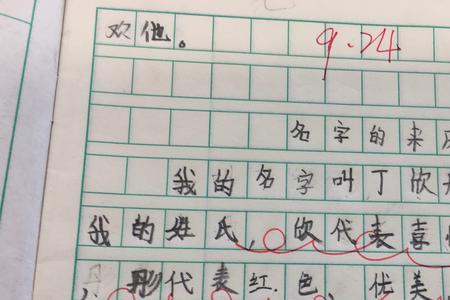 欢他。
9.24
名字的来
我的名字叫丁欣
我的姓氏，欣代表喜
彤代表红色、优美